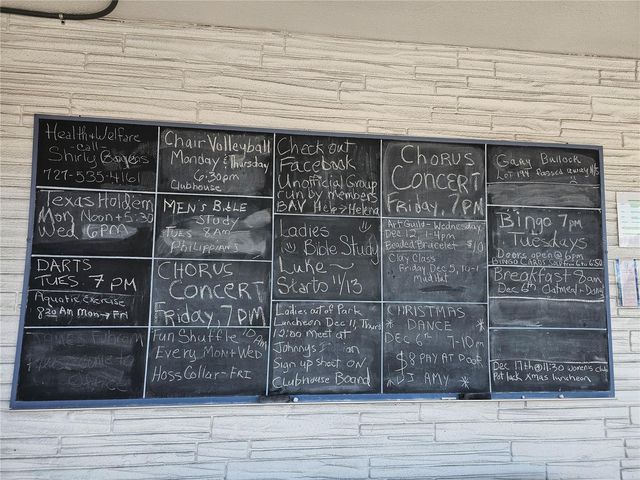 Health & Welfare
-call-
Shirly
727-535-4161
Texas Holdem
Mon Noon & 5:30
Wed 6PM
DARTS
TUES. 7 PM
Aquatic Exercise
8:30 Am Mon → Fri
Chair Volleyball
Monday & Thursday
6:30pm
Clubhouse
MEN'S BIBLE
STUDY
TUES 8AM
PHILIPPIANS
CHORUS
CONCERT
Friday, 7PM
Fun Shuffle
Every Mon & Wed
Hoss Collar - FRI
Check out
Facebook
Unofficial Group
run by members
BAY Helen
Ladies
Bible Study
Luke ~
Starts 11/13
Ladies out of Park
Luncheon Dec 11, Thurs
12:00 Meet at
Johnny's
Sign up Sheet ON
Clubhouse Board
CHORUS
CONCERT
Friday, 7PM
Art Guild - Wednesday
Dec 12, 1-4pm
Beaded Bracelet $10
Clay Class
Friday Dec 5, 10-1
Mud Hut
CHRISTMAS
* DANCE *
DEC 6th 7-10pm
$8 PAY AT Door
* DJ AMY *
Gary Bullock
LOT 194 Passed away 11/5
Bingo 7pm
Tuesdays
Doors open @ 6pm
BINGO CARDS
Breakfast 8am
Dec 6th Oatmeal
Dec 17th @ 11:30 women's club
Pot luck Xmas luncheon